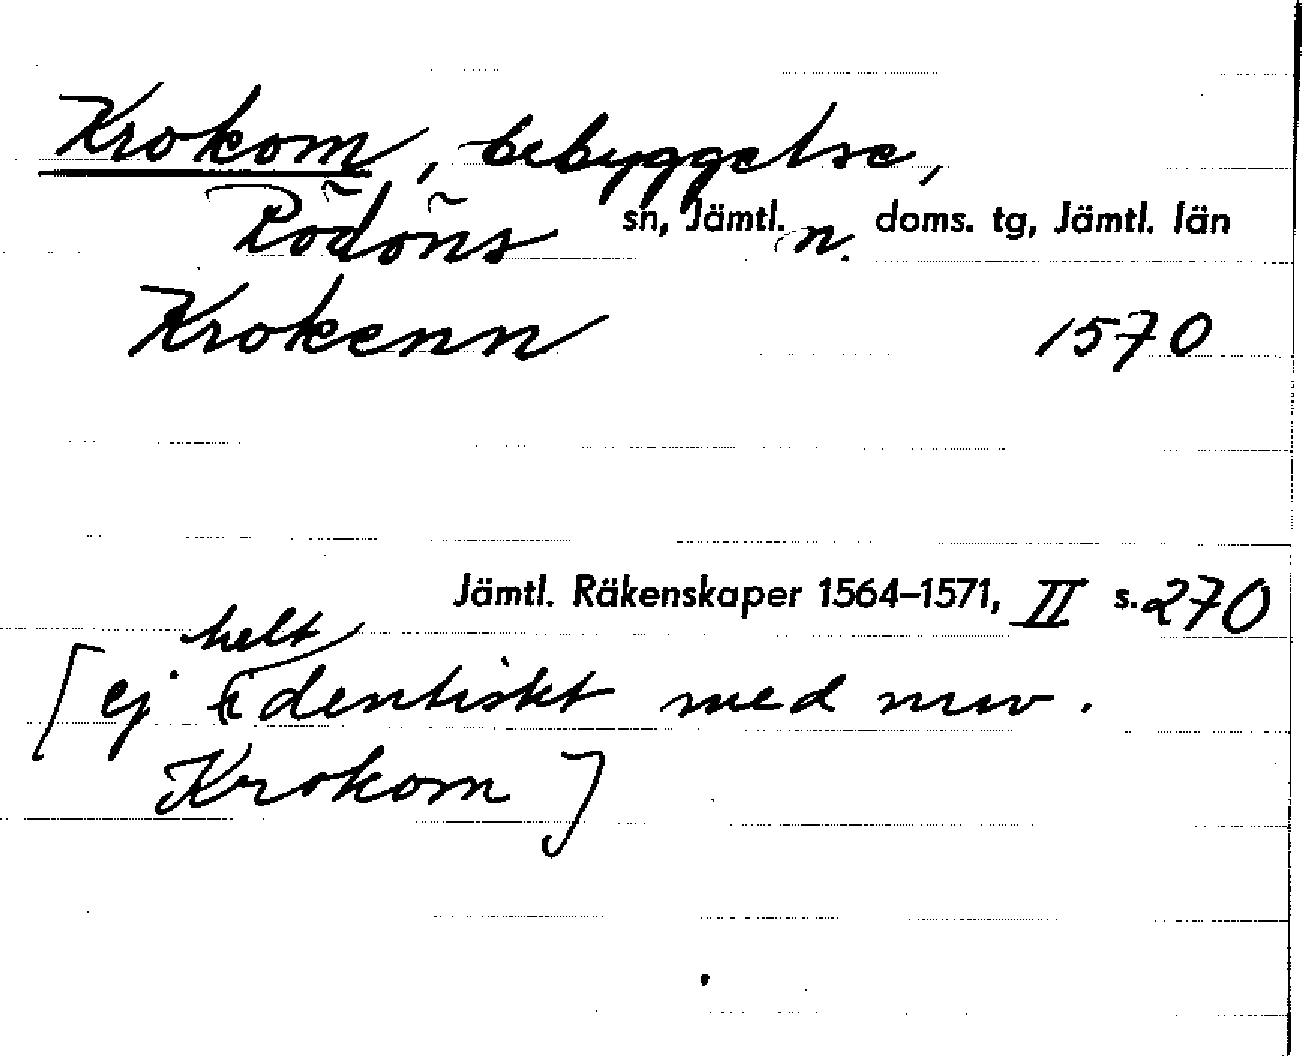 Krokom, bebyggelse,
Rödöns sn, Jämtl. n. doms. tg, Jämtl. län
Krokenn 1570
Jämtl. Räkenskaper 1564–1571, II s. 270
helt
[ej identiskt med nuv.
Krokom]